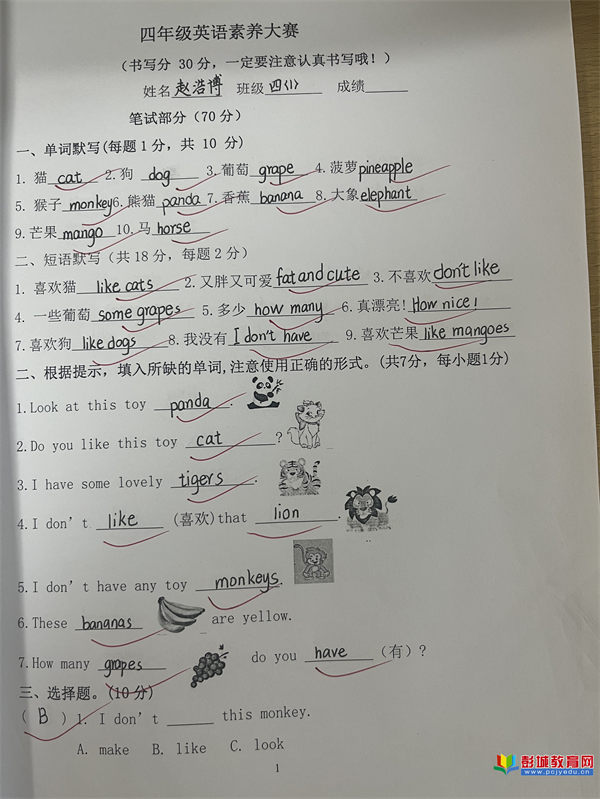 四年级英语素养大赛
（书写分 30 分，一定要注意认真书写哦！）
姓名 赵浩博 班级 四〈1〉 成绩______
笔试部分（70 分）
一、单词默写(每题 1 分，共 10 分)
1. 猫 cat 2. 狗 dog 3. 葡萄 grape 4. 菠萝 pineapple
5. 猴子 monkey 6. 熊猫 panda 7. 香蕉 banana 8. 大象 elephant
9. 芒果 mango 10. 马 horse
二、短语默写（共 18 分，每题 2 分）
1. 喜欢猫 like cats 2. 又胖又可爱 fat and cute 3. 不喜欢 don't like
4. 一些葡萄 some grapes 5. 多少 how many 6. 真漂亮! How nice!
7. 喜欢狗 like dogs 8. 我没有 I don't have 9. 喜欢芒果 like mangoes
二、根据提示，填入所缺的单词,注意使用正确的形式。(共7分，每小题1分)
1. Look at this toy panda.
2. Do you like this toy cat ?
3. I have some lovely tigers.
4. I don't like (喜欢)that lion.
5. I don't have any toy monkeys.
6. These bananas are yellow.
7. How many grapes do you have (有)?
三、选择题。(10分)
( B ) 1. I don't ______ this monkey.
A. make B. like C. look
1
彭城教育网
www.pcjyedu.cn